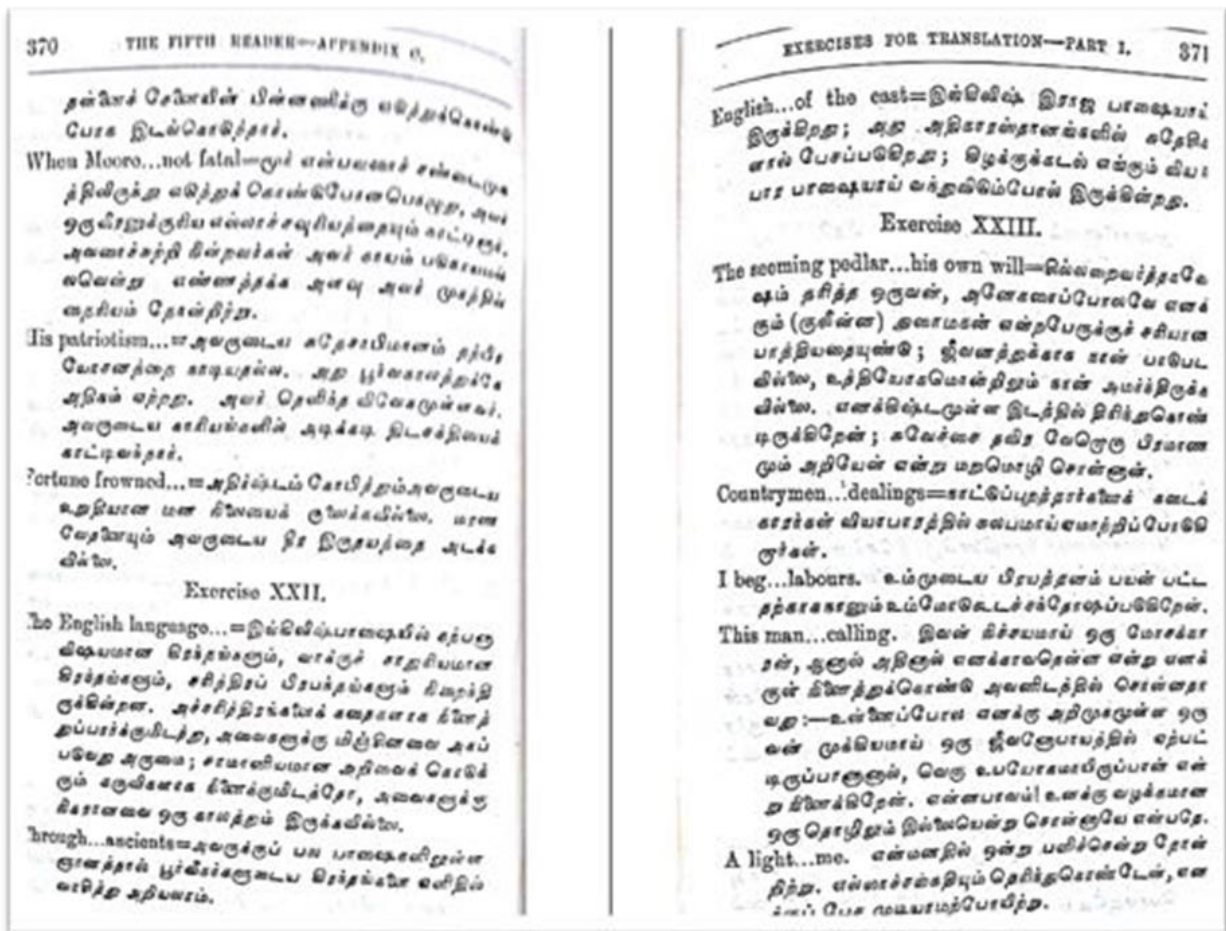 370 THE FIFTH READER—APPENDIX C.
தன்னைச் சேனையின் பின்னணிக்கு எடுத்துக்கொண்டு
போக இடங்கொடுத்தார்.
When Moore...not fatal=மூர் என்பவரைச் சண்டைமுக
த்திலிருந்து எடுத்துக் கொண்டுபோனபொழுது, அவர்
ஒருவீரனுக்குரிய எல்லாச்சவுரியத்தையும் காட்டினார்.
அவரைச்சுற்றி நின்றவர்கள் அவர் காயம் படுகாயமல்
லவென்று எண்ணத்தக்க அளவு அவர் முகத்தில்
தைரியம் தோன்றிற்று.
His patriotism...=அவருடைய சுதேசாபிமானம் தற்பிர
யோசனத்தை நாடியதல்ல. அது பூர்வகாலத்துக்கே
அதிகம் ஏற்றது. அவர் தெளிந்த விவேகமுள்ளவர்.
அவருடைய காரியங்களில் அடிக்கடி திடசக்தியைக்
காட்டிவந்தார்.
Fortune frowned...=அதிர்ஷ்டம் கோபித்தும் அவருடைய
உறுதியான மன நிலையைக் குலைக்கவில்லை. மரண
வேதனையும் அவருடைய தீர இருதயத்தை அடக்க
வில்லை.
Exercise XXII.
The English language...=இங்கிலிஷ்பாஷையில் கற்பனா
விஷயமான கிரந்தங்களும், வாக்குச் சாதுரியமான
கிரந்தங்களும், சரித்திரப் பிரபந்தங்களும் நிறைந்தி
ருக்கின்றன. அச்சரித்திரங்களைக் கதைகளாக நினைத்
துப்பார்க்குமிடத்து, அவைகளுக்கு மிஞ்சினவை அகப்
படுவது அருமை; சாமானியமான அறிவைக் கொடுக்
கும் கருவிகளாக நினைக்குமிடத்தோ, அவைகளுக்கு
நிகரானவை ஒரு காலத்தும் இருக்கவில்லை.
Through...ancients=அவருக்குப் பல பாஷைகளிலுள்ள
ஞானத்தால் பூர்வீகர்களுடைய கிரந்தங்களை எளிதில்
வாசித்து அறியலாம்.
EXERCISES FOR TRANSLATION—PART I. 371
English...of the east=இங்கிலிஷ் இராஜ பாஷையாய்
இருக்கிறது; அது அதிகாரஸ்தானங்களில் சுதேசிக
ளால் பேசப்படுகிறது; கிழக்குக்கடல் எங்கும் வியா
பார பாஷையாய் வந்துவிடும்போல் இருக்கின்றது.
Exercise XXIII.
The seeming pedlar...his own will=சில்லறைவர்த்தகவே
ஷம் தரித்த ஒருவன், அனேகரைப்போலவே எனக்
கும் (குலீன்ன) கனமான் என்றபேருக்குச் சரியான
பாத்தியதையுண்டு; ஜீவனத்துக்காக நான் பாடுபட
வில்லை, உத்தியோகமொன்றிலும் நான் அமர்ந்திருக்க
வில்லை. எனக்கிஷ்டமுள்ள இடத்தில் திரிந்துகொண்
டிருக்கிறேன்; சுவேச்சை தவிர வேறொரு பிரமாண
மும் அறியேன் என்று மறுமொழி சொன்னான்.
Countrymen...dealings=நாட்டுப்புறத்தார்களைக் கடைக்
காரர்கள் வியாபாரத்தில் சுலபமாய் ஏமாற்றிப்போடுகி
றார்கள்.
I beg...labours. உம்முடைய பிரயத்தனம் பயன் பட்ட
தற்காக நானும் உம்மோடுகூடச் சந்தோஷப்படுகிறேன்.
This man...calling. இவன் நிச்சயமாய் ஒரு மோசக்கா
ரன், ஆனால் அதினால் எனக்காவதென்ன என்று எனக்
குள் நினைத்துக்கொண்டு அவனிடத்தில் சொன்னதா
வது:—உன்னைப்போல எனக்கு அறிமுகமுள்ள ஒரு
வன் முக்கியமாய் ஒரு ஜீவனோபாயத்தில் ஏற்பட்
டிருப்பானானால், வெகு உபயோகமாயிருப்பான் என்
று நினைக்கிறேன். என்னபாவம்! உனக்கு வழக்கமான
ஒரு தொழிலும் இல்லையென்று சொன்னாயே என்பதே.
A light...me. என்மனதில் ஒன்று பளிச்சென்று தோன்
றிற்று. எல்லாச்சங்கதியும் தெரிந்துகொண்டேன், என
க்குப் பேச முடியாமற்போயிற்று.